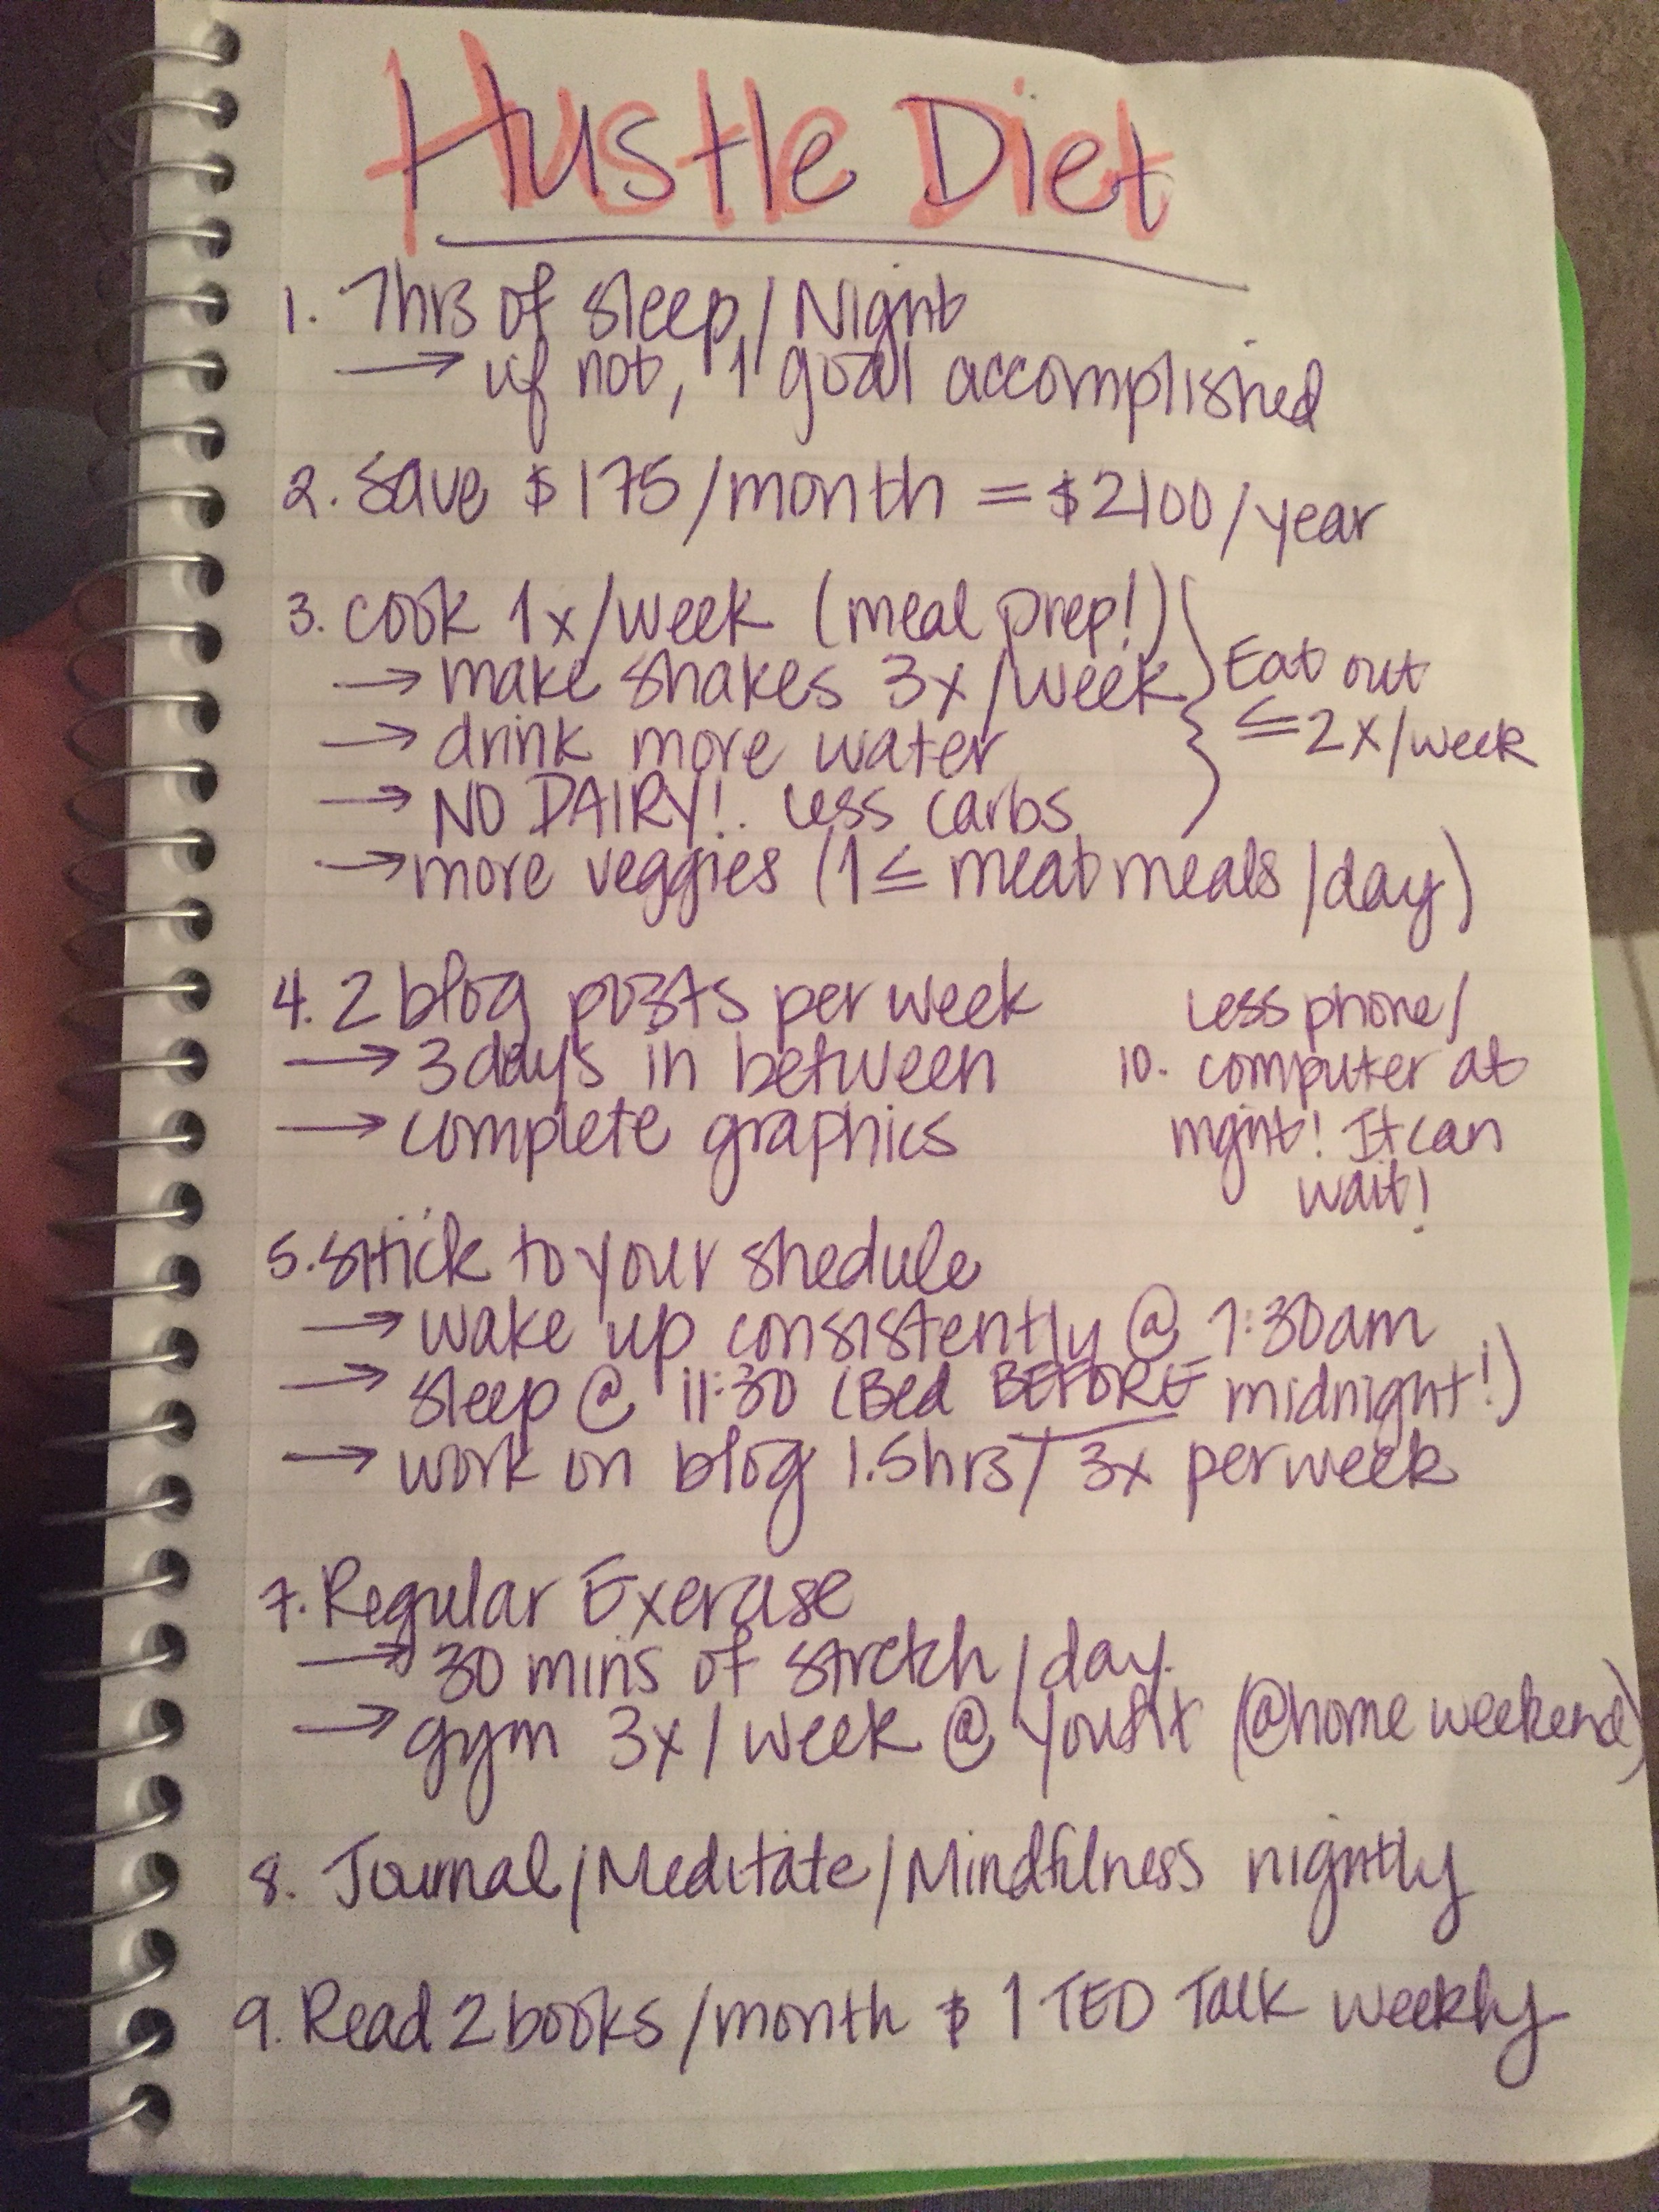 Hustle Diet
1. 7hrs of sleep / Night
→ if not, 1 goal accomplished
2. Save $175/month = $2100/year
3. Cook 1x/week (meal prep!)
→ make shakes 3x/week
→ drink more water
→ NO DAIRY! Less carbs
Eat out
≤2x/week
→ more veggies (1 ≤ meat meals /day)
4. 2 blog posts per week
→ 3 days in between
→ complete graphics
Less phone/
10. computer at
night! It can
wait!
5. Stick to your shedule
→ wake up consistently @ 7:30am
→ sleep @ 11:30 (Bed BEFORE midnight!)
→ work on blog 1.5hrs/ 3x per week
7. Regular Exercise
→ 30 mins of stretch/day.
→ gym 3x/week @ Youfit (@home weekend)
8. Journal/Meditate/Mindfulness nightly
9. Read 2 books/month & 1 TED Talk weekly